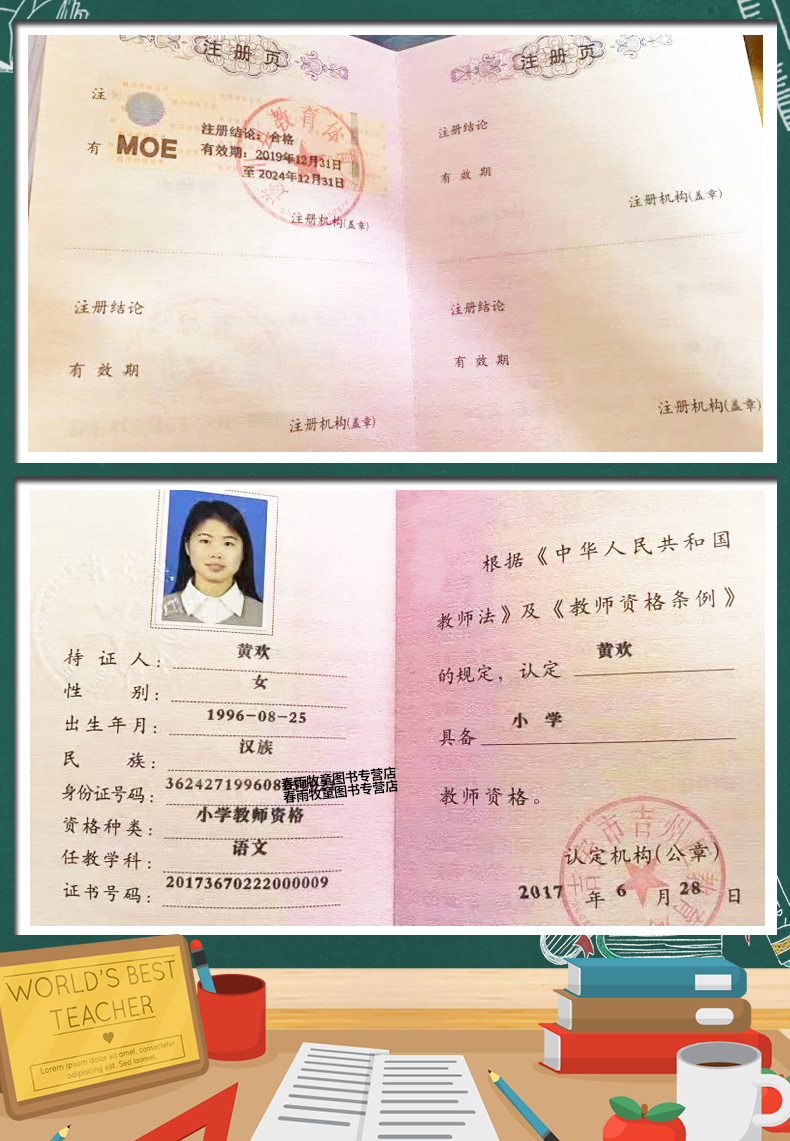 注册页
注
有
MOE
注册结论：合格
有效期：2019年12月31日
至 2024年12月31日
教育体育
注册机构(盖章)
注册结论
有效期
注册机构(盖章)
注册页
注册结论
有效期
注册机构(盖章)
注册结论
有效期
注册机构(盖章)
持证人：黄欢
性别：女
出生年月：1996-08-25
民族：汉族
身份证号码：362427199608
春雨牧童图书专营店
春雨牧童图书专营店
资格种类：小学教师资格
任教学科：语文
证书号码：20173670222000009
根据《中华人民共和国
教师法》及《教师资格条例》
的规定，认定 黄欢
具备 小学
教师资格。
认定机构(公章)
2017年6月28日
WORLD'S BEST
TEACHER
Lorem ipsum dolor sit amet, consectetur
adipiscing elit. Sed laoreet.